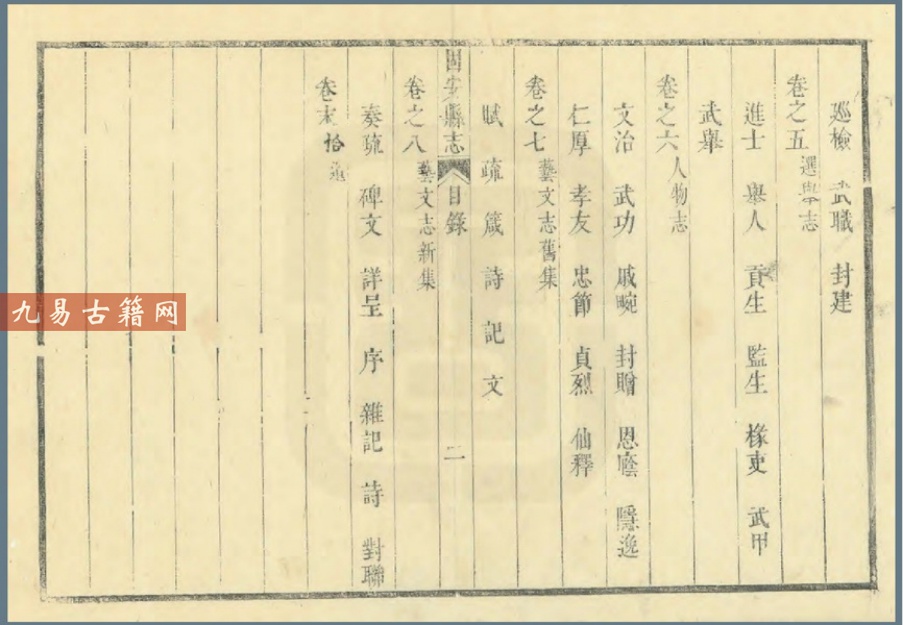 廵檢 武職 封建
卷之五 選舉志
進士 舉人 貢生 監生 椽吏 武甲
武舉
卷之六 人物志
文治 武功 戚畹 封贈 恩廕 隱逸
仁厚 孝友 忠節 貞烈 仙釋
卷之七 藝文志舊集
賦 疏 箴 詩 記 文
固安縣志 目錄 二
卷之八 藝文志新集
奏疏 碑文 詳呈 序 雜記 詩 對聯
卷末 拾遺
九易古籍网